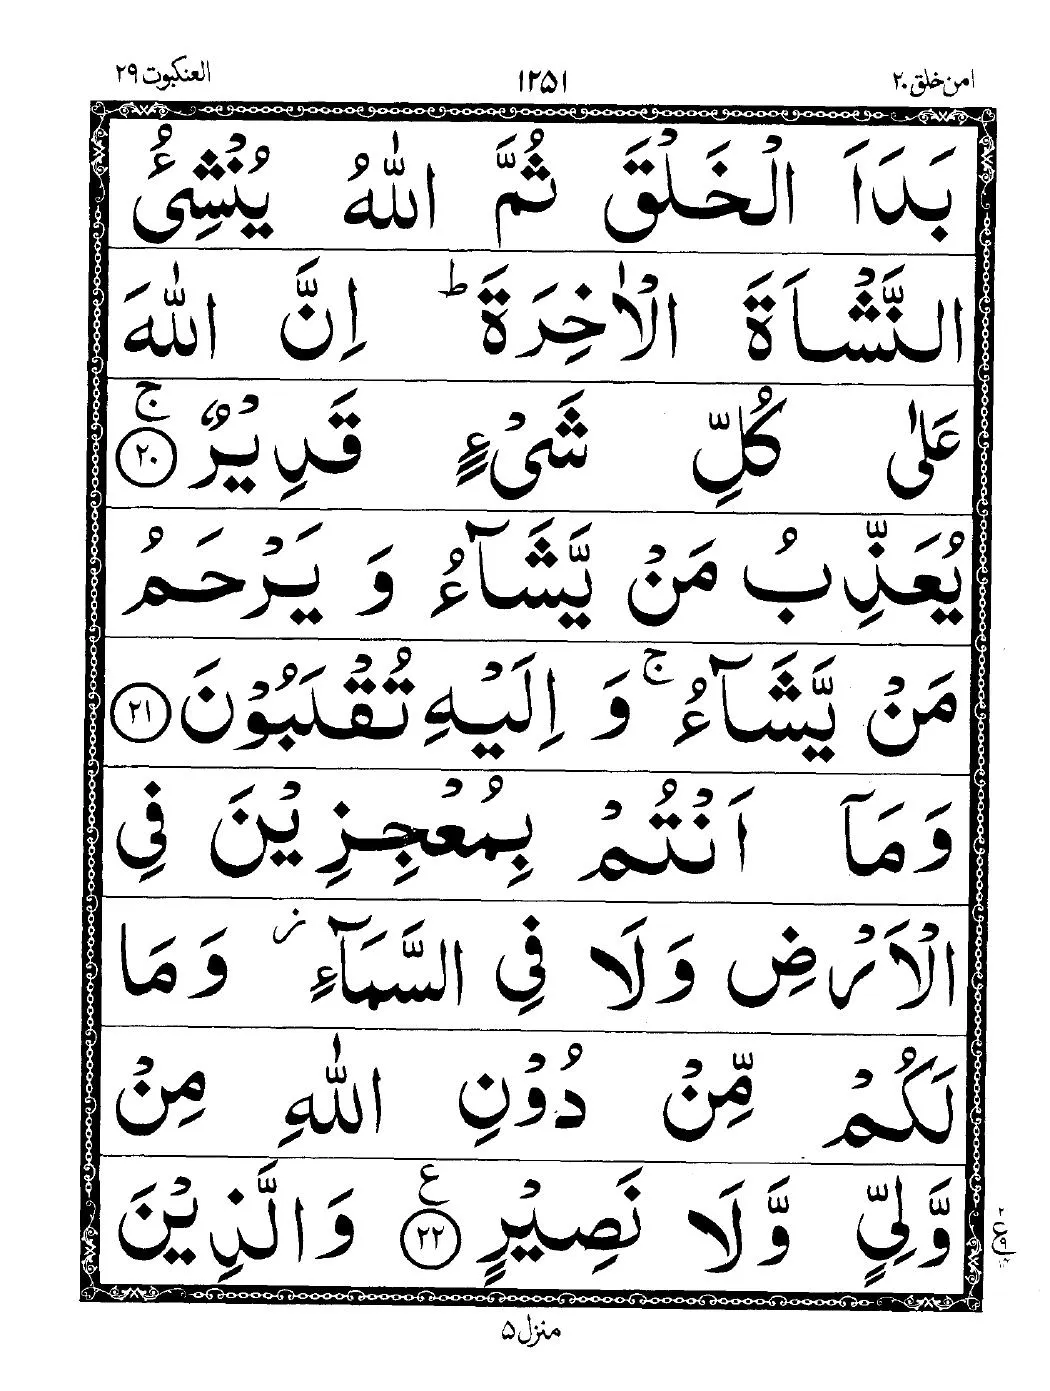 امن خلق ۲۰ ۱۲۵۱ العنکبوت ۲۹
بَدَاَ الْخَلْقَ ثُمَّ اللّٰهُ يُنْشِئُ
النَّشْاَةَ الْاٰخِرَةَ ؕ اِنَّ اللّٰهَ
عَلٰى كُلِّ شَىْءٍ قَدِيْرٌ ۚ ﴿۲۰﴾
يُعَذِّبُ مَنْ يَّشَآءُ وَ يَرْحَمُ
مَنْ يَّشَآءُ ۚ وَ اِلَيْهِ تُقْلَبُوْنَ ﴿۲۱﴾
وَمَآ اَنْتُمْ بِمُعْجِزِيْنَ فِى
الْاَرْضِ وَلَا فِى السَّمَآءِ ؗ وَمَا
لَكُمْ مِّنْ دُوْنِ اللّٰهِ مِنْ
وَّلِىٍّ وَّلَا نَصِيْرٍ ﴿۲۲﴾ ع وَالَّذِيْنَ
منزل ۵